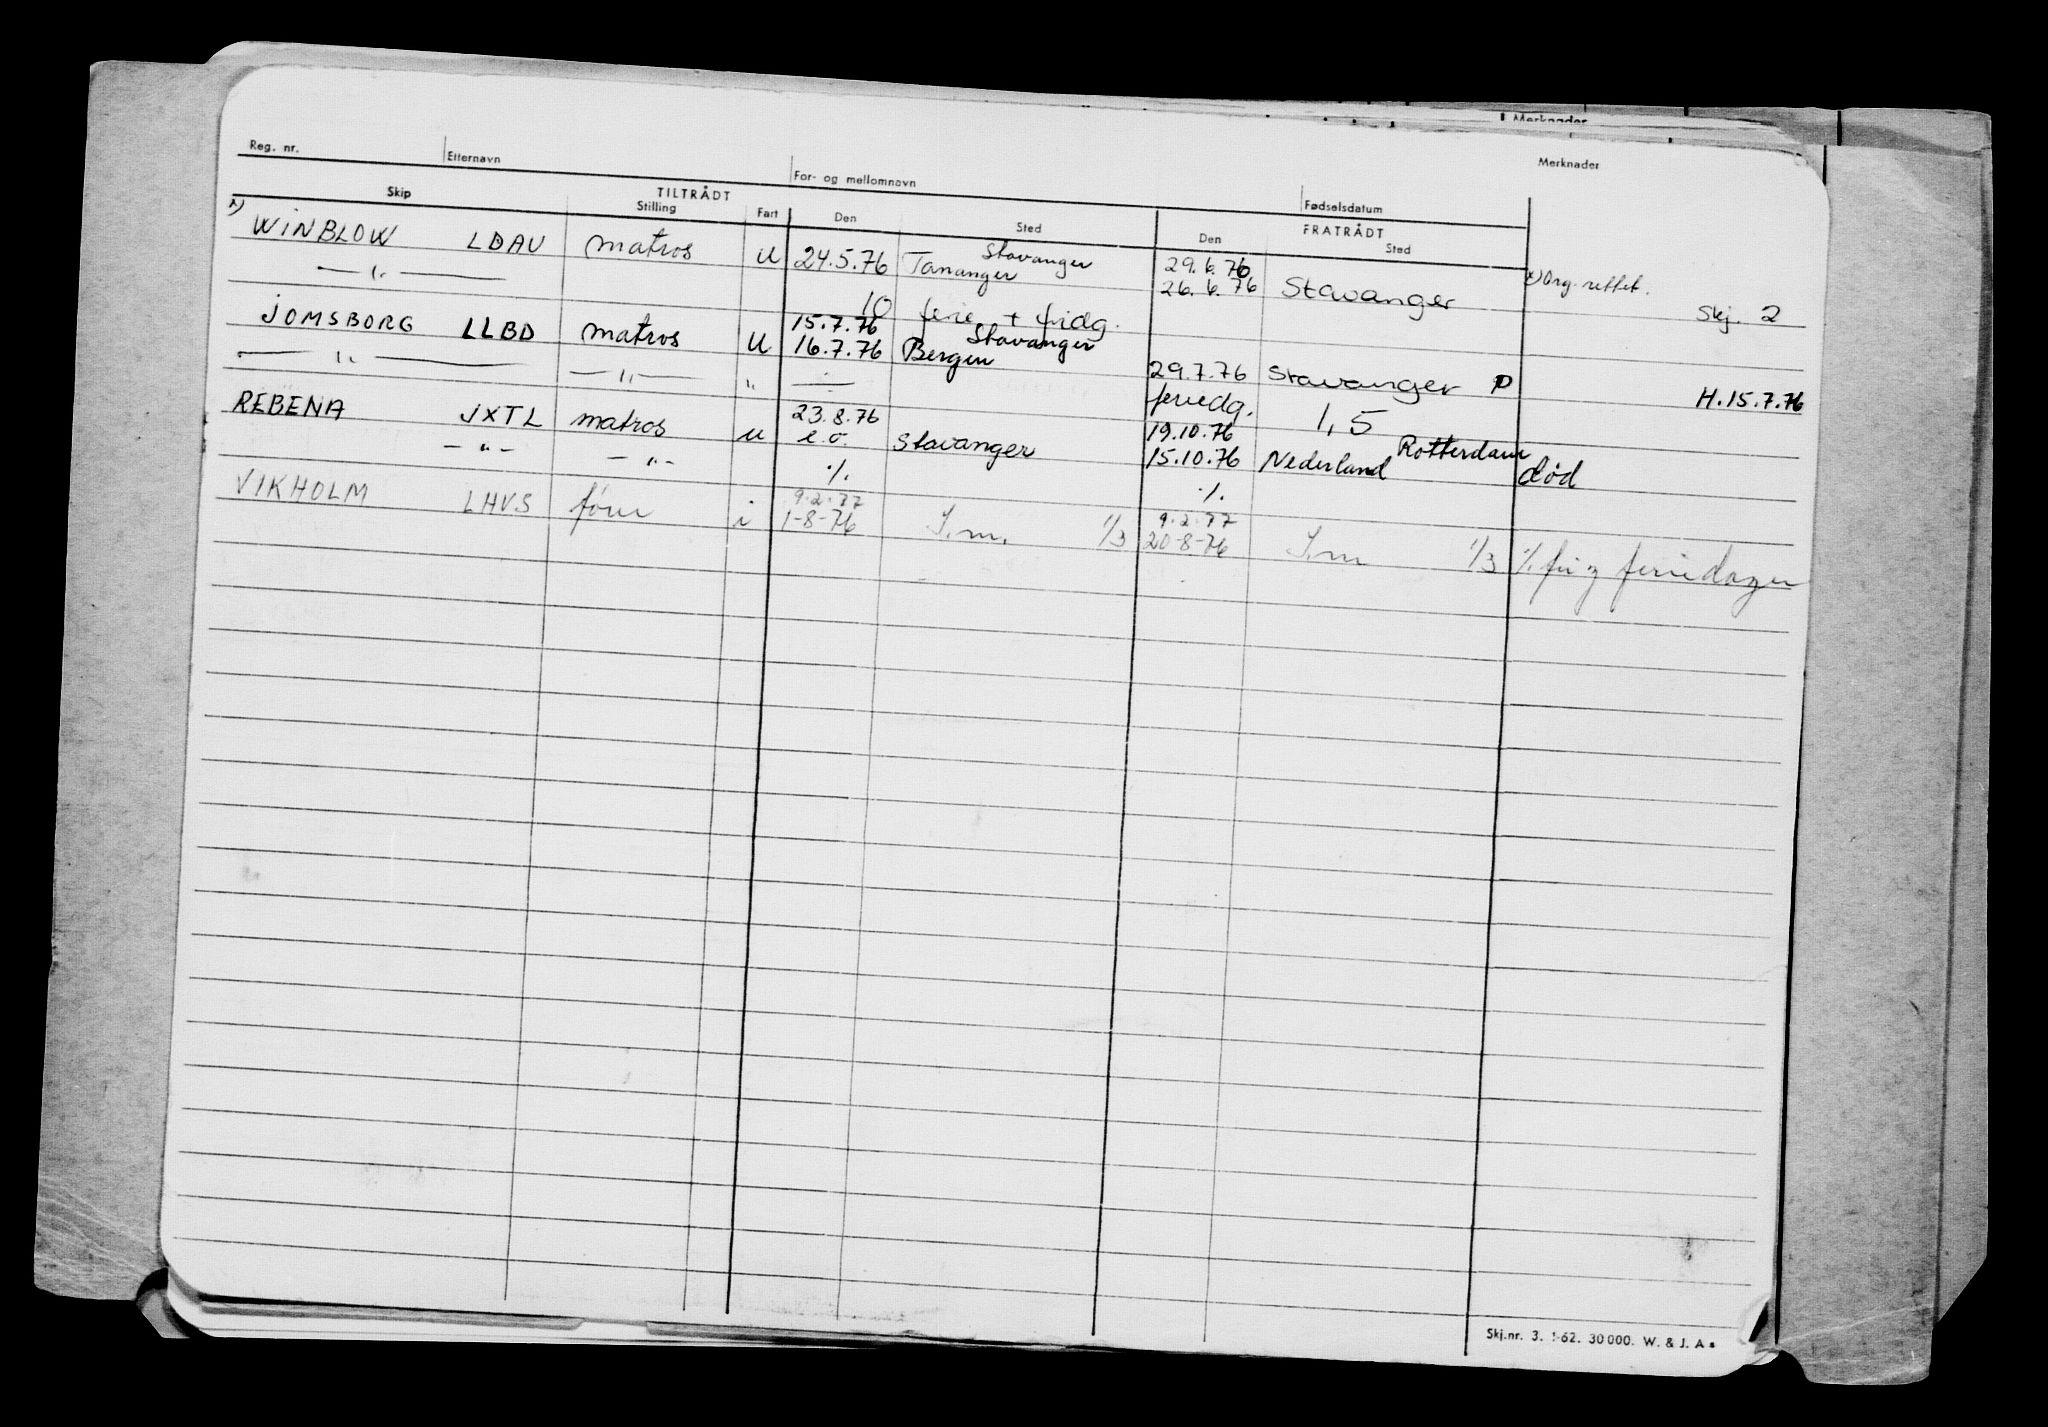 Merknader
Reg. nr. Etternavn For- og mellomnavn Fødselsdatum Merknader
TILTRÅDT FRATRÅDT
Skip Stilling Fart Den Sted Den Sted
x) WINBLOW LDAU matros u 24.5.76 Stavanger Tananger 29.6.76 26.6.76 Stavanger x) Org. rettet. Skj. 2
— " —
10 ferie + fridg.
JOMSBORG LLBD matros u 15.7.76 16.7.76 Stavanger Bergen
— " — — " — " ÷ 29.7.76 Stavanger P H.15.7.76
feriedg. 1,5
REBENA JXTL matros u 23.8.76 e.o. Stavanger 19.10.76 15.10.76 Rotterdam Nederland død
- " - - " - ./. ./.
VIKHOLM LHVS i 9.2.77 1-8-76 S.m. 1/3 9.2.77 20-8-76 S.m 1/3 ./. feriedager
Skj.nr. 3. 1-62. 30000. W. & J. A s